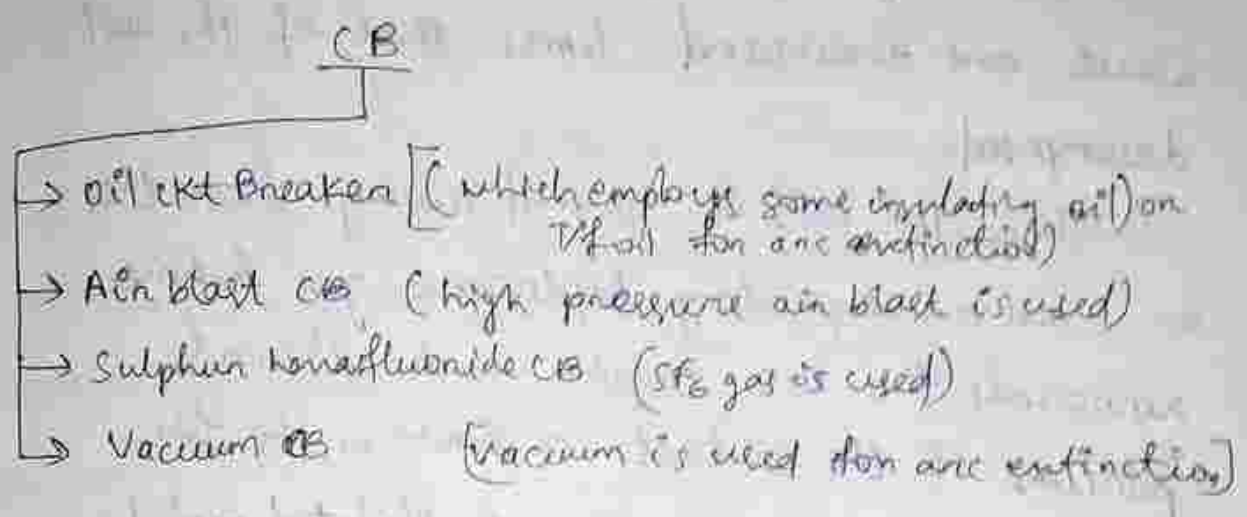 CB
→ Oil ckt Breaker [(which employs some insulating oil) or
T/f oil for arc extinction)
→ Air blast CB (high pressure air blast is used)
→ Sulphur hexafluoride CB (SF6 gas is used)
→ Vacuum CB [Vacuum is used for arc extinction]